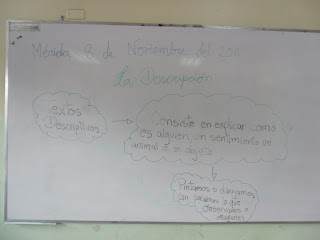 Mérida 8 de Noviembre del 2011
La Descripción
textos
Descriptivos
Consiste en explicar como
es alguien, un sentimiento un
animal o un objeto
Pintamos o dibujamos
con palabras lo que
observamos o